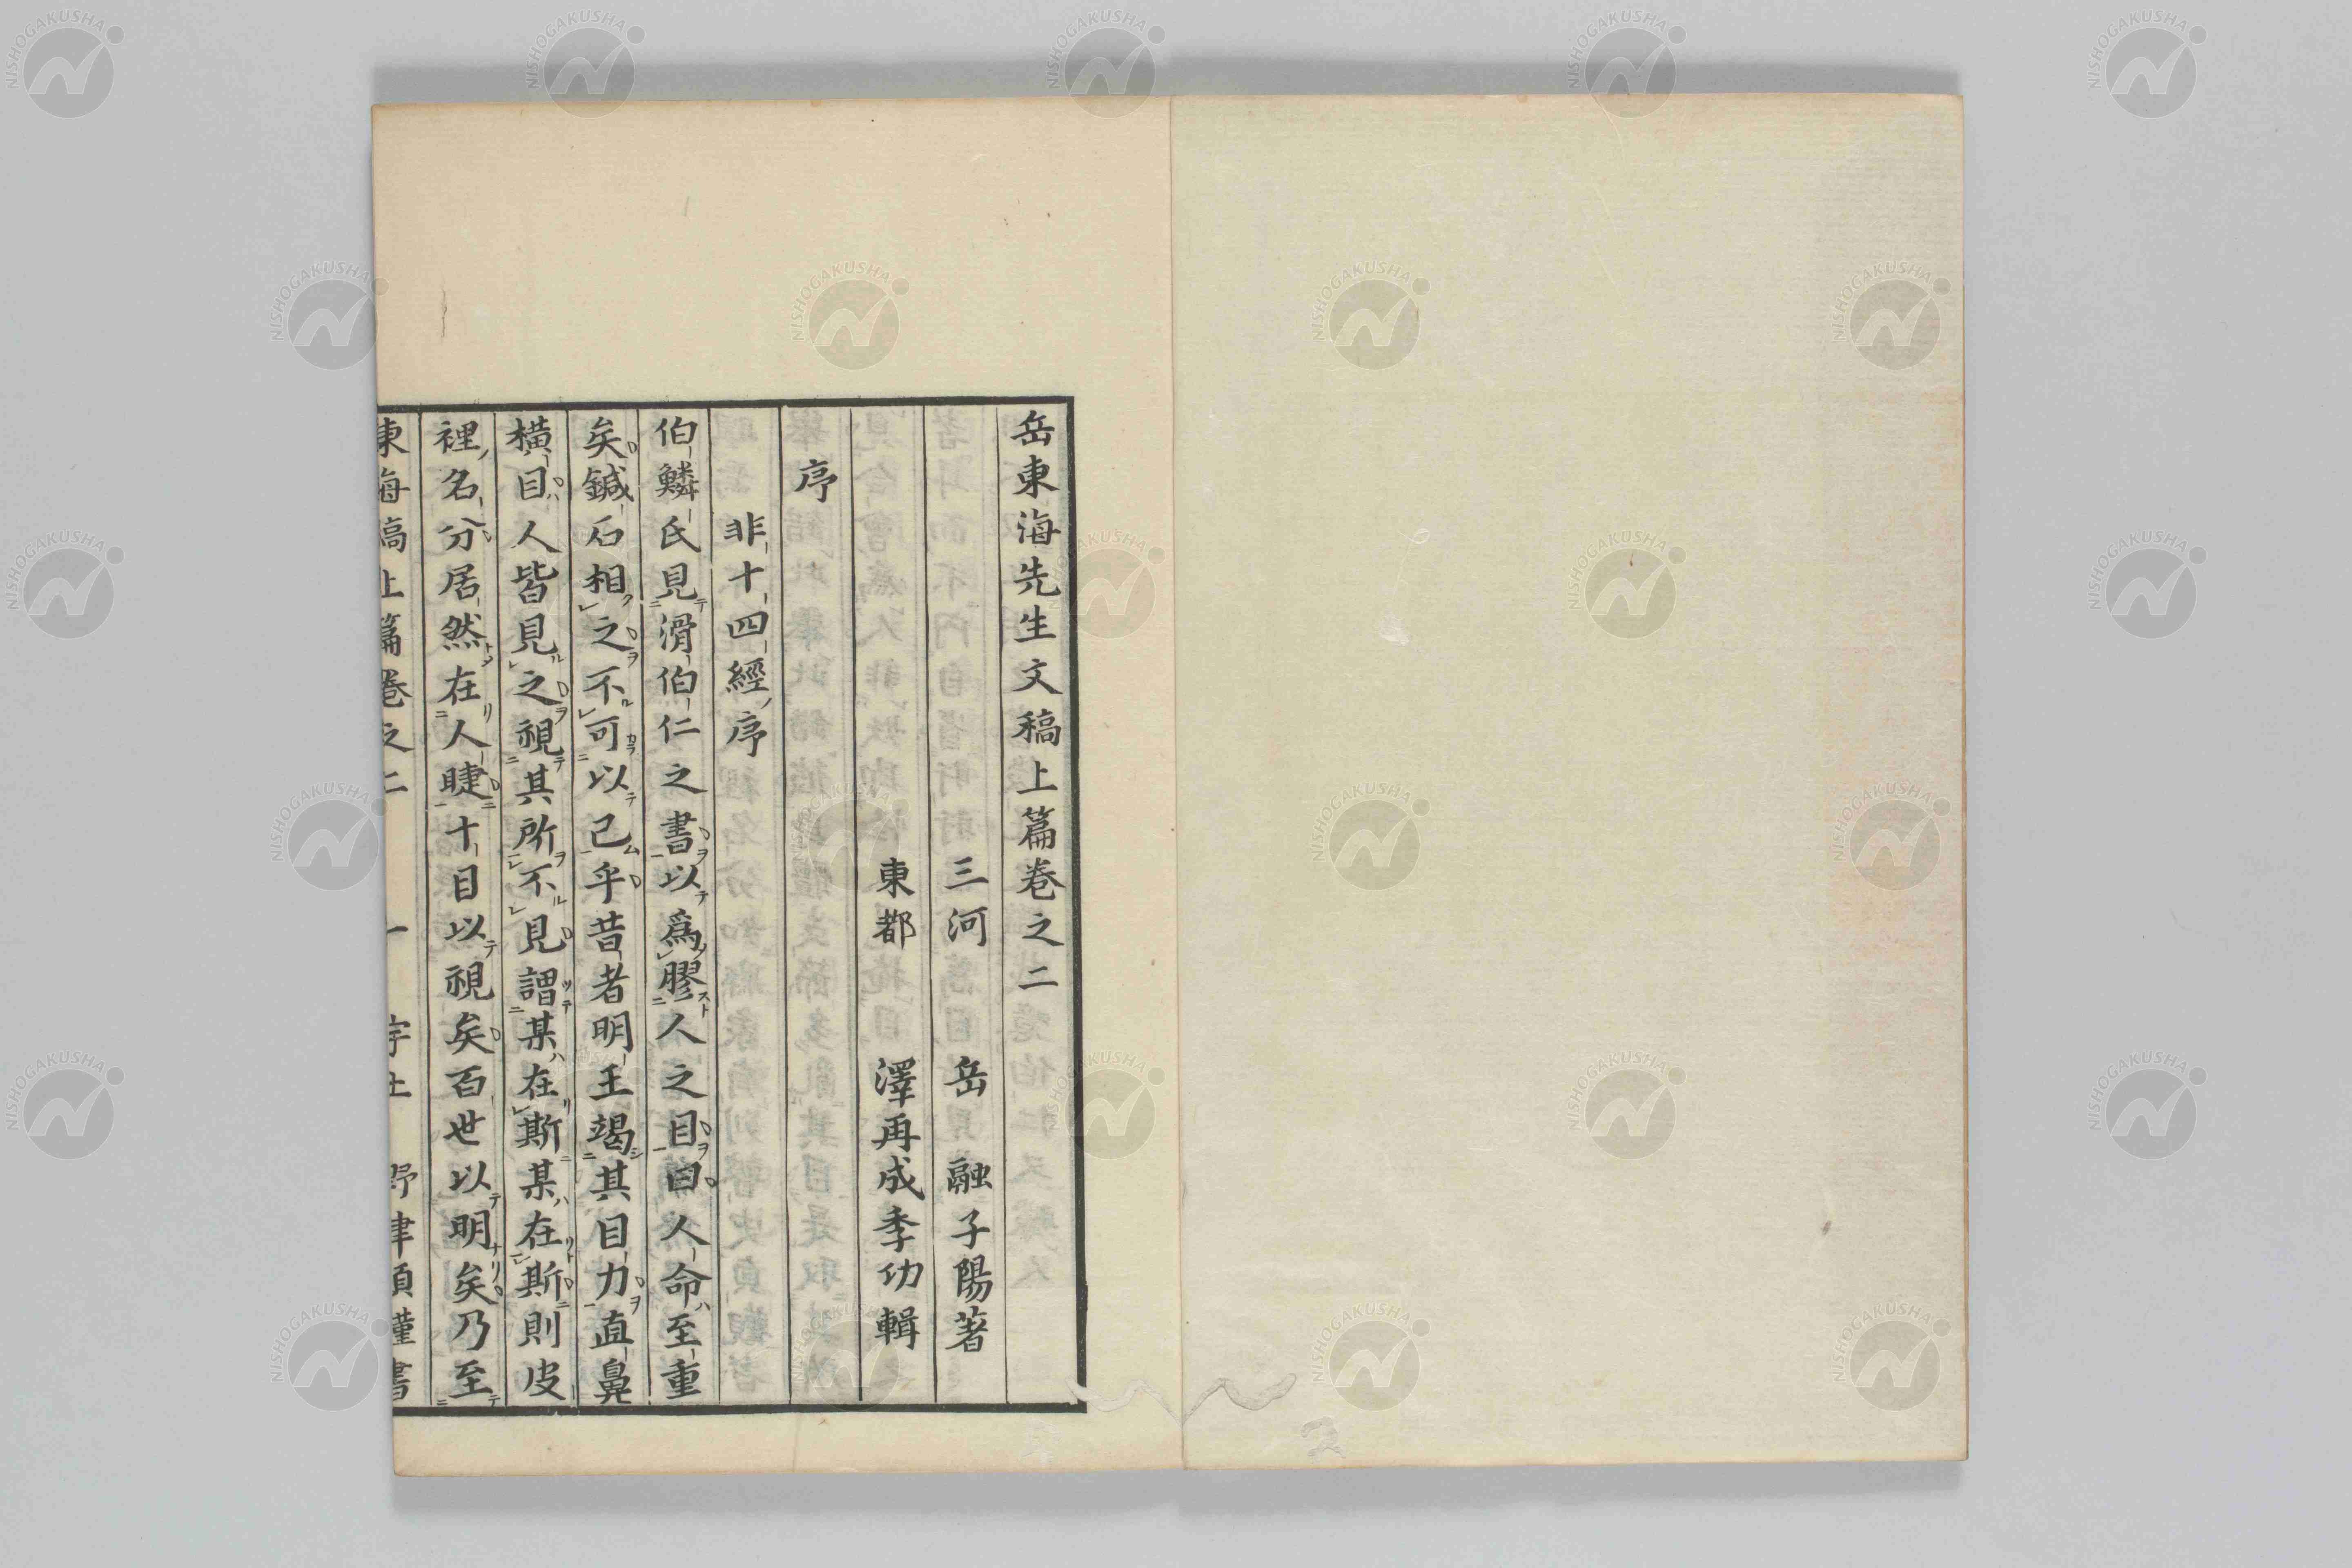 岳東海先生文稿上篇卷之二
三河 岳融子陽著
東都 澤再成季功輯
序
非十四經序
伯鱗氏見滑伯仁之書以爲膠人之目曰人命至重
矣鍼石相之不可以已乎昔者明王竭其目力直鼻
橫目人皆見之視其所不見謂某在斯某在斯則皮
裡名分居然在人睫十目以視矣百世以明矣乃至
東海稿上篇卷之二 一
NISHOGAKUSHA